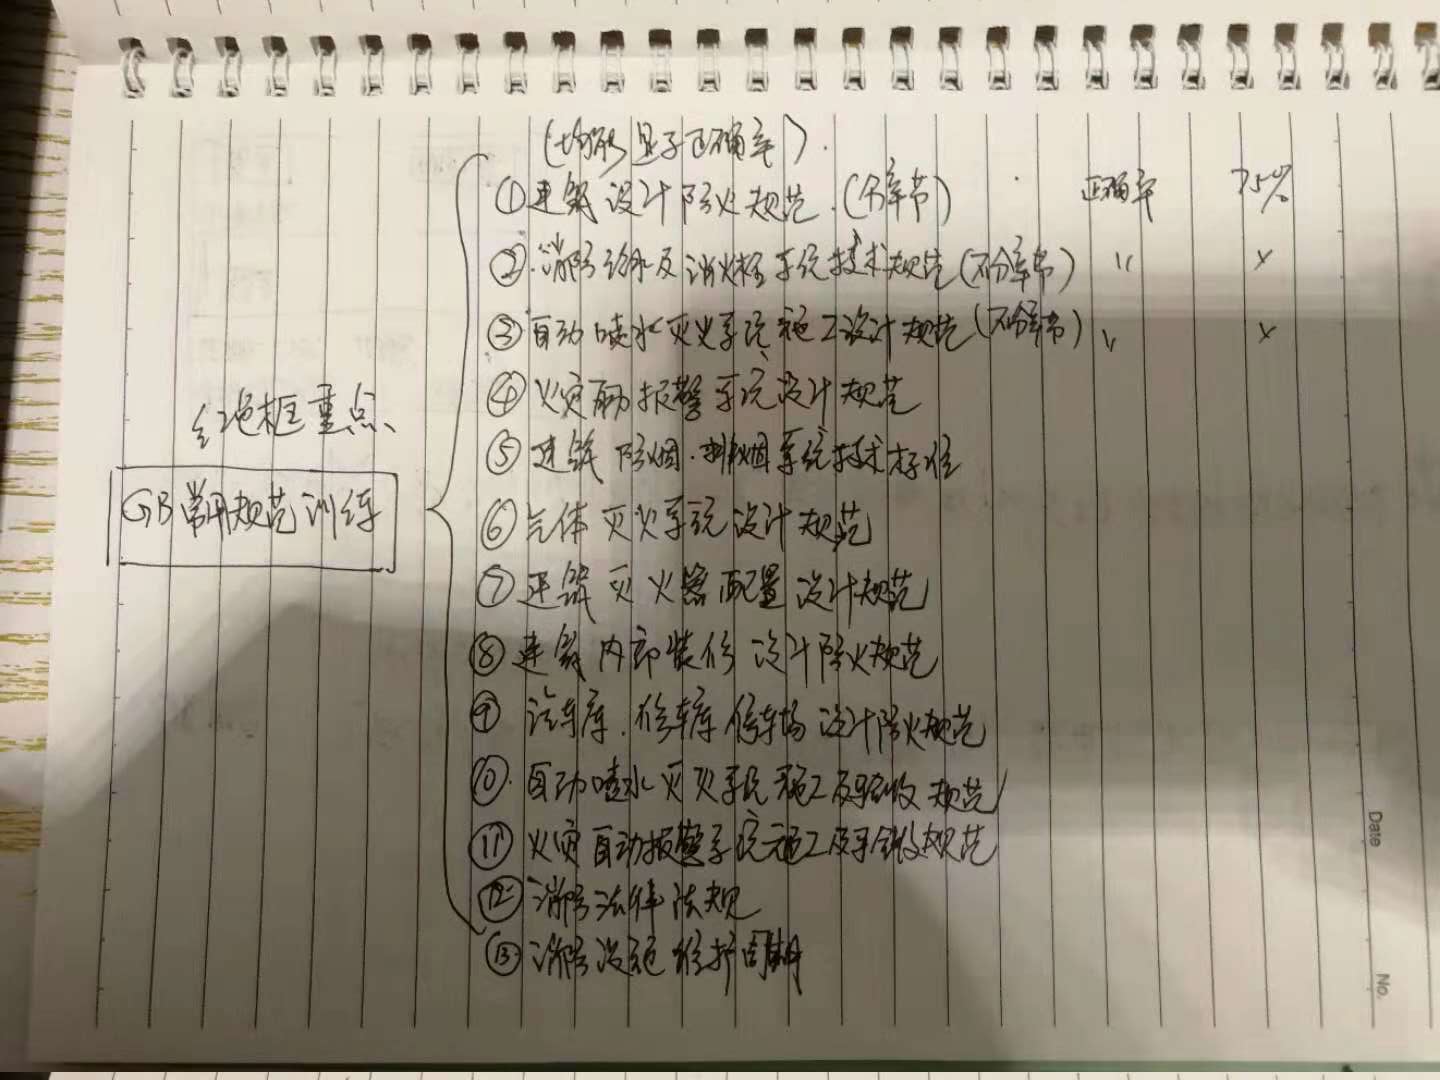 (均需显示正确率).
①建筑设计防火规范.(分章节) 正确率 75%
②.消防给水及消火栓系统技术规范(不分章节) " ×
③自动喷水灭火系统施工设计规范(不分章节) " ×
④火灾自动报警系统设计规范
红色框重点、
⑤建筑防烟.排烟系统技术标准
GB常用规范训练
⑥气体灭火系统设计规范
⑦建筑灭火器配置设计规范
⑧建筑内部装修设计防火规范
⑨汽车库.修车库停车场设计防火规范
⑩.自动喷水灭火系统施工及验收规范
⑪火灾自动报警系统施工及验收规范
⑫消防法律法规
⑬消防设施维护周期
Date
No.